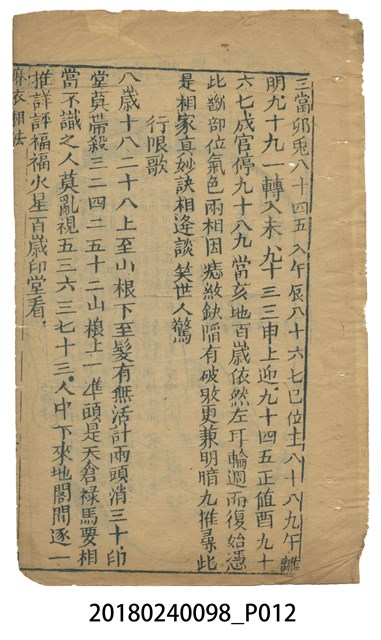 三當卯兎八十四五入午辰八十六七巳位主八十八九午離
明九十九一轉入未九十三三申上迎九十四五正值酉九十
六七成官停九十八九當亥地百歲依然左耳輪週而復始憑
此斷部位氣色兩相因痣紋缺陷有破敗更兼明暗九推尋此
是相家真妙訣相逢談笑世人驚
行限歌
八歲十八二十八上至山根下至髮有無活計兩頭消三十印
堂莫帶殺三二四二五十二山根上一準頭是天倉祿馬要相
當不識之人莫亂視五三六三七十三人中下來地閣間逐一
推詳評福福火星百歲印堂看
麻衣相法
20180240098_P012